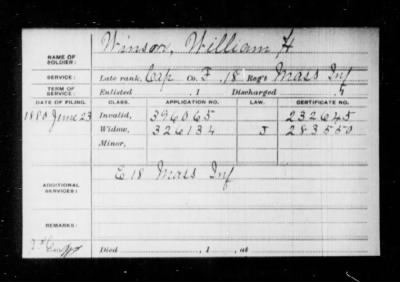 NAME OF SOLDIER: Winsor, William H
SERVICE: Late rank, Cap Co. F, 18 Reg't Mass Inf
TERM OF SERVICE: Enlisted , 1 Discharged , 1
DATE OF FILING. CLASS. APPLICATION NO. LAW. CERTIFICATE NO.
1880 June 23 Invalid, 396065 232645
Widow, 326134 J 283550
Minor,
ADDITIONAL SERVICES: E 18 Mass Inf
REMARKS:
Died , 1 , at